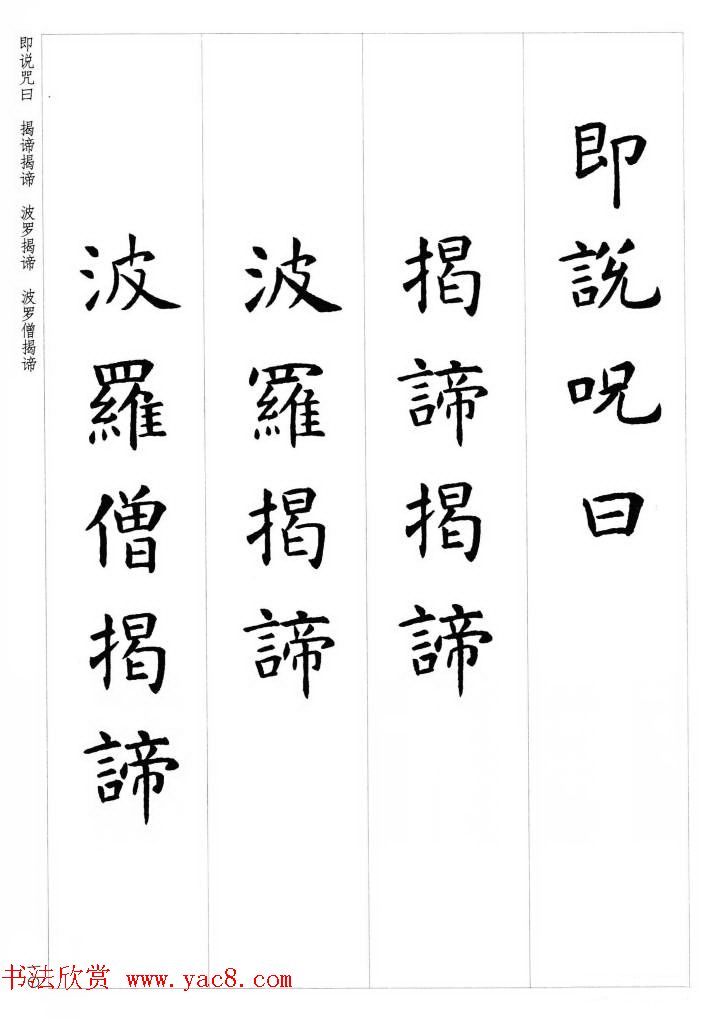 即說呪曰
揭諦揭諦
波羅揭諦
波羅僧揭諦
即说咒曰 揭谛揭谛 波罗揭谛 波罗僧揭谛
书法欣赏 www.yac8.com